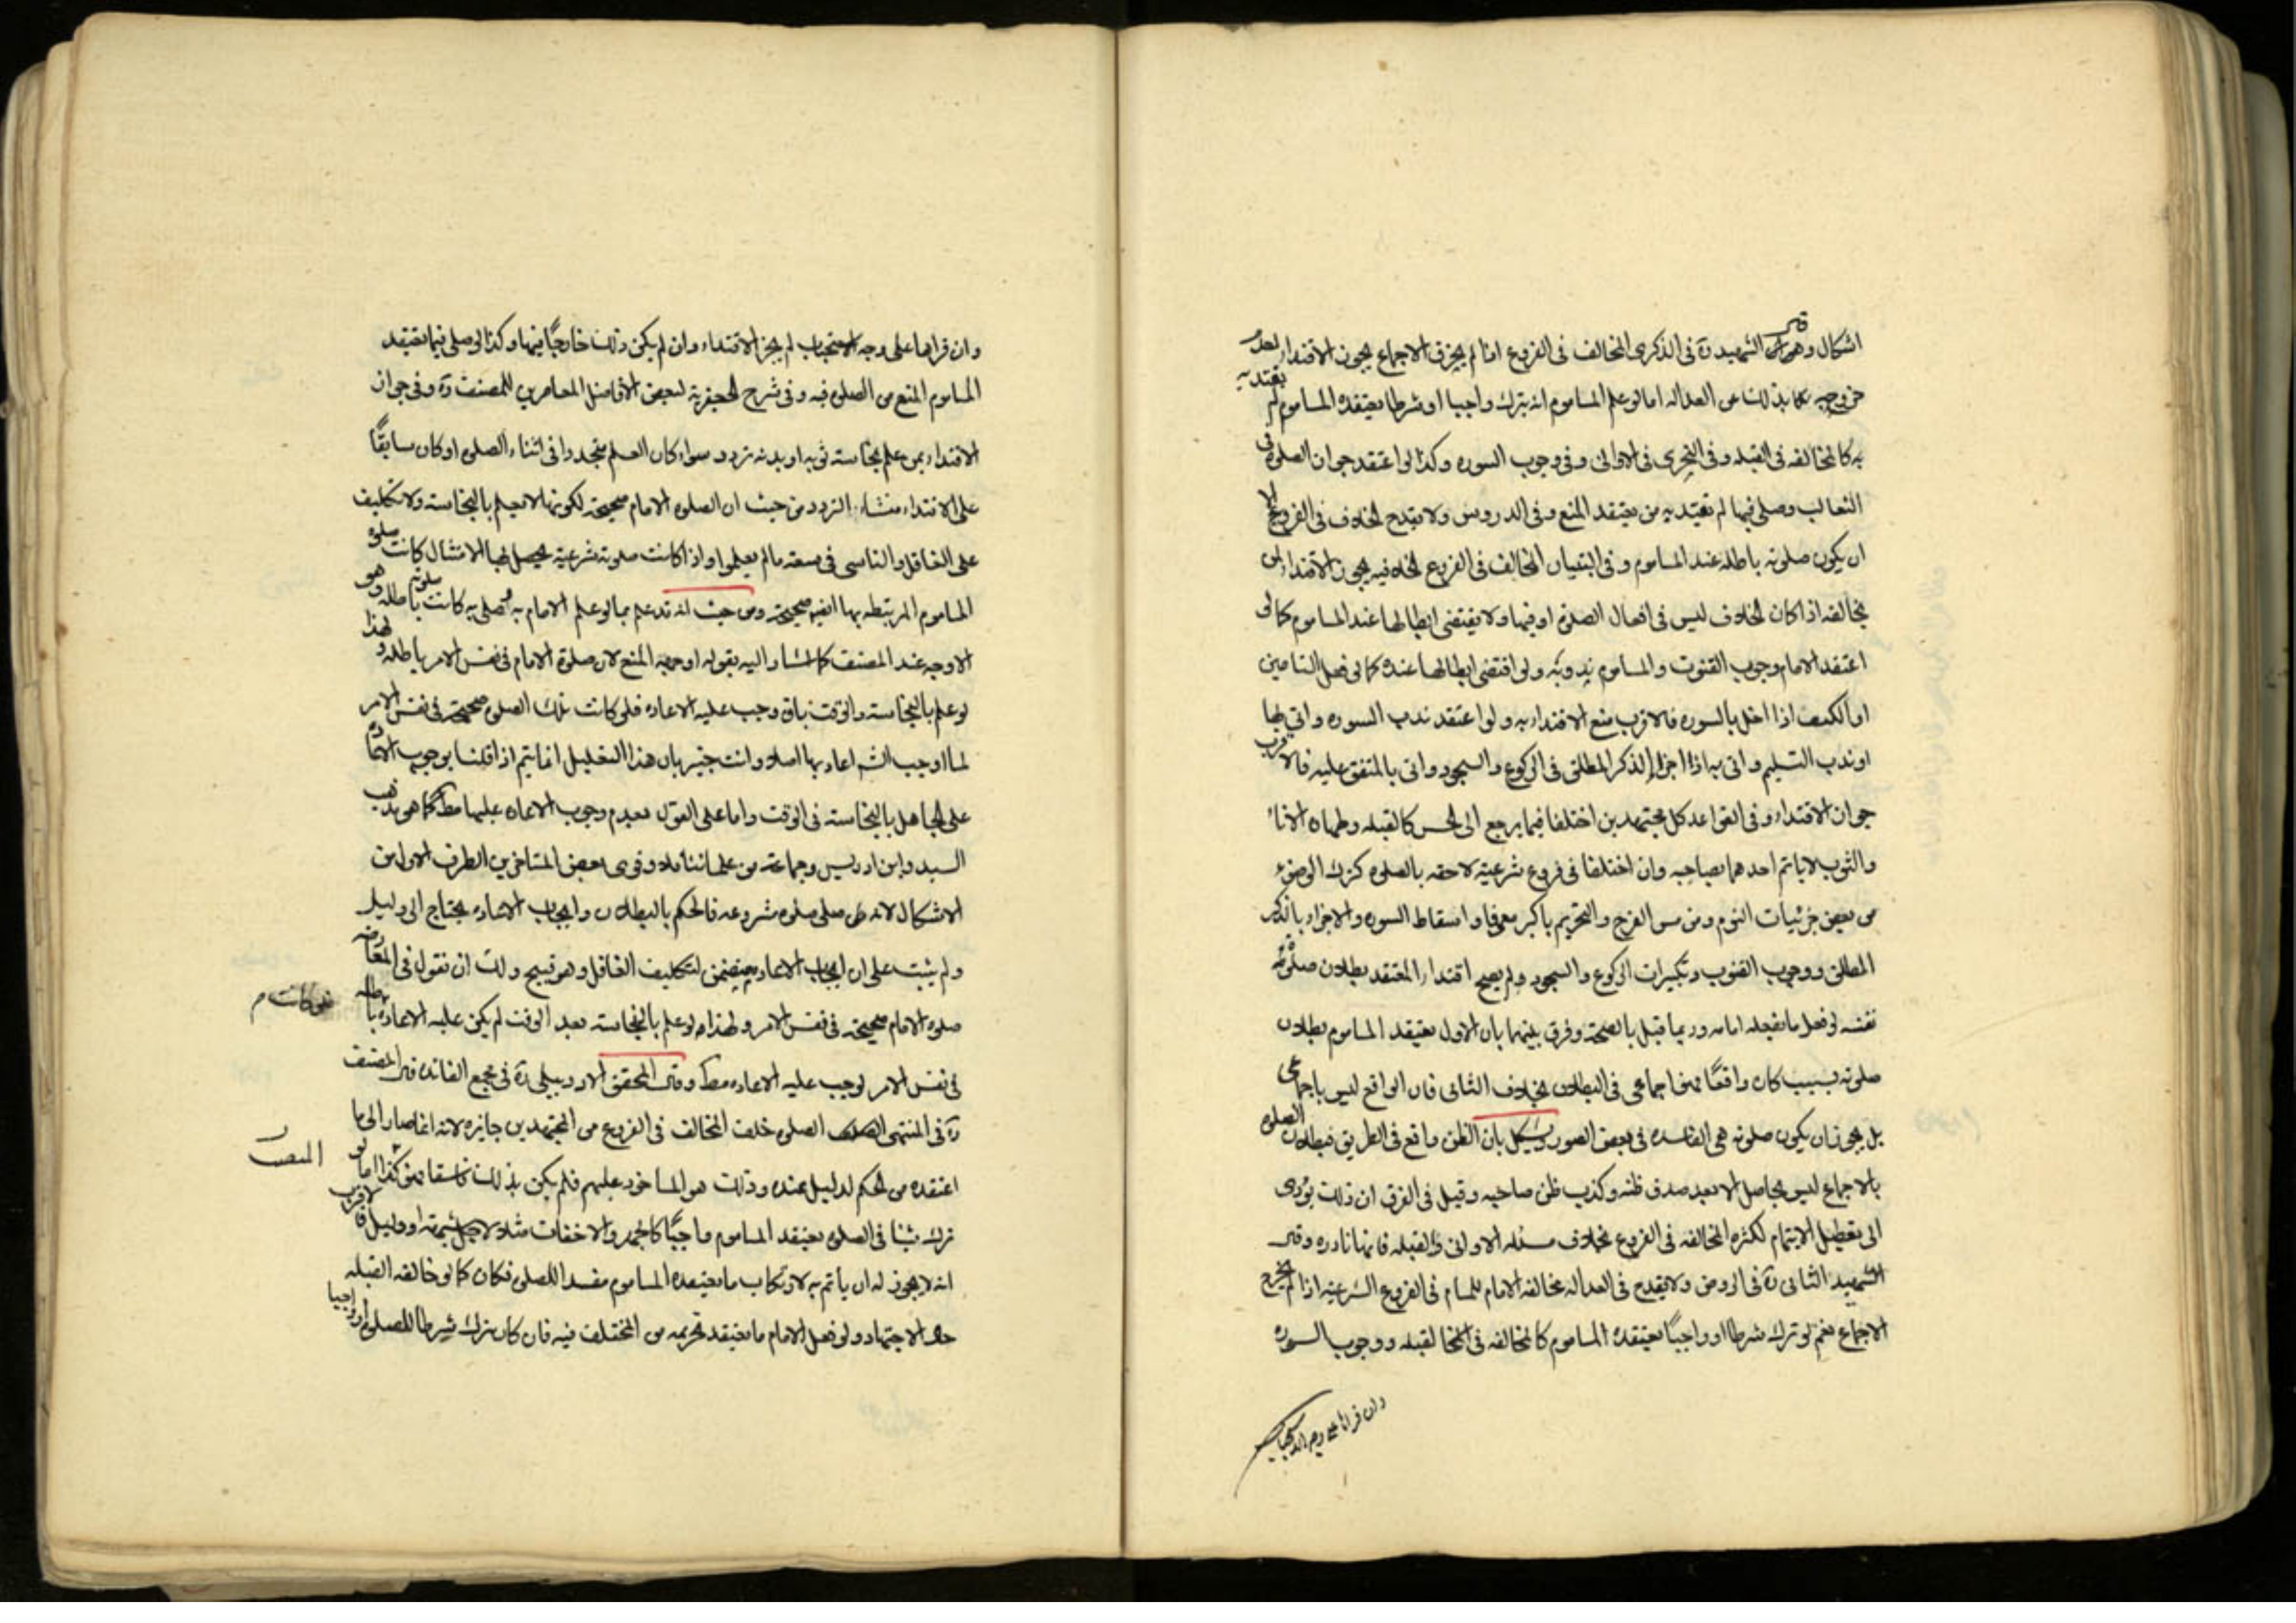 اشكال وقال الشهيد ره فى الذكرى المخالف فى الفروع اذا لم يخرق الاجماع يجوز الاقتداء لعدم
خروجه بذلك عن العداله اما لو علم الماموم انه يترك واجبا او شرطا يعتقده الماموم لم يقتد به
به كالمخالفه فى القبله وفى التحرى فى الاوانى وفى وجوب السوره وكذا لو اعتقد جواز الصلوة فى
الثعالب وصلى فيها لم يقتد به من يعتقد المنع وفى الدروس ولا يقدح الخلاف فى الفروع الا
ان يكون صلوته باطله عند الماموم وفى البيان المخالف فى الفروع يجوز الاقتداء
بمخالفه اذا كان الخلاف ليس فى افعال الصلوة او فيها ولا يقتضى ابطالها عند الماموم كما لو
اعتقد الامام وجوب القنوت والماموم ندوبه ولو اقتضى ابطالها عنده كما لو فعل التامين
او الكتف اذا اخل بالسوره فالاقرب منع الاقتداء به ولو اعتقد ندب السوره واتى بها
او ندب التسليم واتى به او اجزاء الذكر المطلق فى الركوع والسجود واتى بالمتفق عليه فالاقرب
جواز الاقتداء وفى القواعد كل مجتهدين اختلفا فيما يرجع الى الحس كالقبله وطهاره الاناء
والثوب لا ياتم احدهما بصاحبه وان اختلفا فى فروع شرعيه لاحقه بالصلوه كترك الوضوء
من بعض جزئيات النوم ومن مس الفرج والتحريم باكبر معرفا واسقاط السوره والاجزاء بالذكر
المطلق ووجوب القنوت وتكبيرات الركوع والسجود ولم يصح اقتداء المعتقد بطلان صلوته
نفسه لو فعل ما يفعله امامه وربما قيل بالصحة وفرق بينهما بان الاول يعتقد الماموم بطلان
صلوته بسبب كان واقعًا فهو اجماعى فى البطلان بخلاف الثانى فان الواقع ليس باجماعى
بل يجوز ان يكون صلوته هى الفاسده فى بعض الصور ويشكل بان الظن واقع فى الطريق فبطلان الصلوة
بالاجماع ليس بحاصل الا بعد صدق ظنه وكذب ظن صاحبه وقيل فى الفرق ان ذلك يؤدى
الى تعطيل الايتمام لكثره المخالفه فى الفروع بخلاف مسئله الاوانى والقبله فانها نادره وقال
الشهيد الثانى ره فى الروض ولا يقدح فى العداله مخالفه الامام للماموم فى الفروع الشرعيه اذا لم يخرج
الاجماع نعم لو ترك شرطا او واجبًا يعتقده الماموم كالمخالفه فى القبله ووجوب السوره
وان قراها على وجه الاستحباب
وان قراها على وجه الاستحباب لم يجز الاقتداء وان لم يكن ذلك خارجًا فيها وكذا لو صلى فيما يعتقد
الماموم المنع من الصلوه فيه وفى شرح الجعفرية لبعض الافاضل المعاصرين للمصنف ره وفى جواز
الاقتداء بمن علم بنجاسته ثوبه او بدنه تردد سواء كان العلم متجددا فى اثناء الصلوه او كان سابقًا
على الاقتداء منشاء التردد من حيث ان الصلوه الامام صحيحة لكونها لا يعلم بالنجاسته ولا تكليف
على الغافل والناسى فى سعة مالم يعلموا واذا كانت صلوته شرعية يحصل بها الامتثال كانت صلوه
الماموم المرتبطه بها ايضا صحيحة ومن حيث انه قد علم بما لو علم الامام به وصلى به كانت صلوته باطله وهو
الاوجه عند المصنف كما اشار اليه بقوله اوجهه المنع لان صلوة الامام فى نفس الامر باطله ولهذا
لو علم بالنجاسته والوقت باق وجب عليه الاعاده فلو كانت تلك الصلوه صحيحة فى نفس الامر
لما اوجب الشارع اعادتها اصلا وانت خبير بان هذا التعليل انما يتم اذا قلنا بوجوب الاعاده
على الجاهل بالنجاسته فى الوقت واما على القول بعدم وجوب الاعاده عليها مط كما هو مذهب
السيد وابن ادريس وجماعة من علمائنا وقوى بعض المتاخرين الطرف الاول من
الاشكال لانه صلى صلوه مشروعه فالحكم بالبطلان وايجاب الاعاده يحتاج الى دليل
ولم يثبت على ان ايجاب الاعاده يتضمن لتكليف الغافل وهو قبيح ولك ان نقول فى المعارضه
صلوه الامام صحيحة فى نفس الامر ولهذا لو علم بالنجاسته بعد الوقت لم يكن عليه الاعاده باطله
فلو كانت م
فى نفس الامر لوجب عليه الاعاده مط وقال المحقق الاردبيلى ره فى مجمع الفائده قال المصنف
ره فى المنتهى الصلوه خلف المخالف فى الفروع من المجتهدين جايزه لانه انما صار الى ما
المنصف
اعتقده من الحكم لدليل عنده وذلك هو الماخوذ عليهم فلم يكن بذلك فاسقا نعم كذا اما لو
ترك شيئا فى الصلوه يعتقد الماموم واجبًا كالجهر والاخفات مثلا لاجل شبهته او دليل فالاقرب
انه لا يجوز له ان ياتم به لارتكاب ما يعتقده الماموم مفسدا للصلوه فكان كما لو خالفه القبله
حال الاجتهاد ولو فعل الامام ما يعتقد تحريمه من المختلف فيه فان كان ترك شرطا للصلوة او واجبا